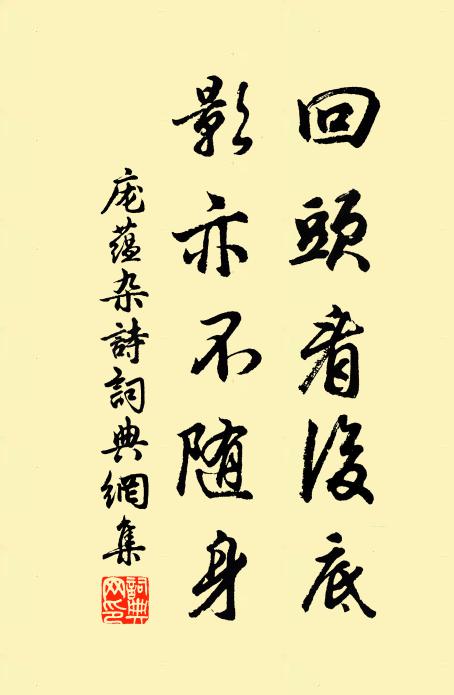 回頭看後底
影亦不随身
庞蕴杂詩詞典網集
詞典
网印